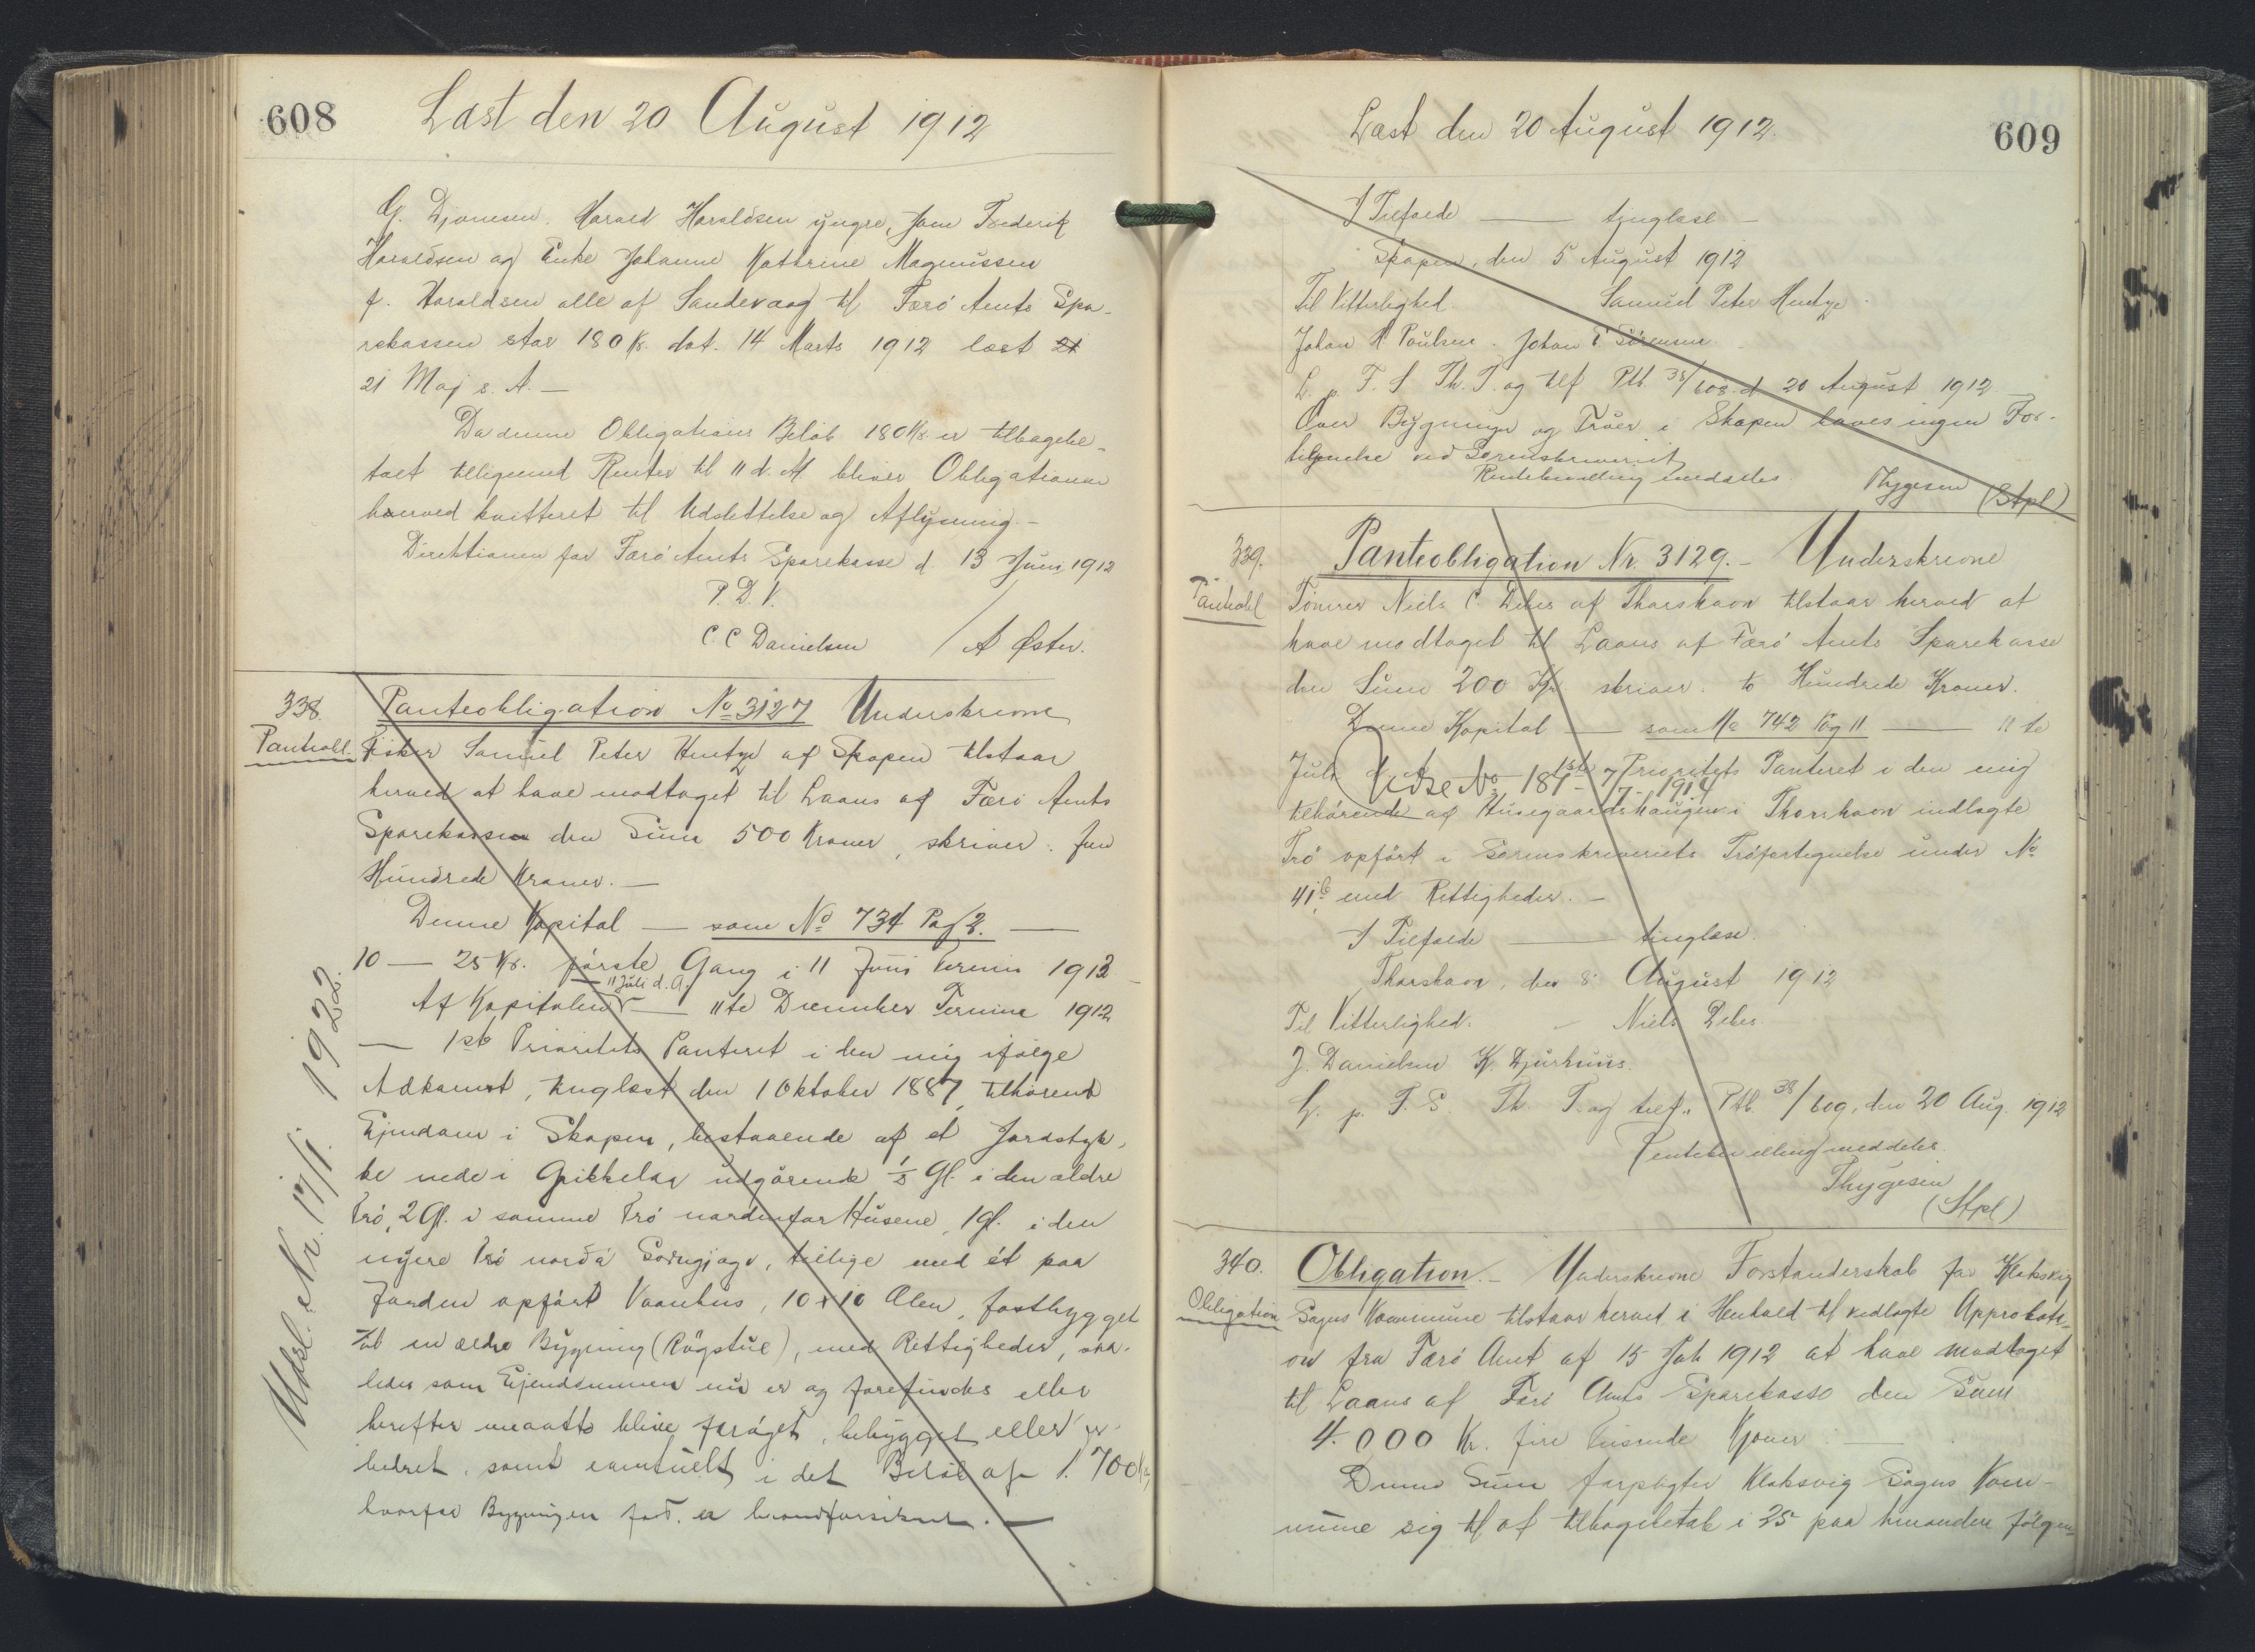 608
Læst den 20 August 1912
G. Djonesen. Harald Haraldsen yngre, Jens Frederik
Haraldsen og Enke Johanne Kathrine Magnussen
f. Haraldsen alle af Sandevaag til Færö Amts Spa-
rekassen stor 180 Kr. dat. 14 Marts 1912 læst 21
21 Maj s. A. —
Da denne Obligations Beløb 180 Kr. er tilbagebe-
talt tilligemed Renter til 11 d. M. bliver Obligationen
herved kvitteret til Udslettelse og Aflysning. –
Direktionen for Færö Amts Sparekasse d. 13 Juni 1912
P. D. V.
C. C Danielsen / A Øster.
338.
Panteobl.
Panteobligation No 3127 Underskrevne
Fisker Samuel Peter Hentze af Skopen tilstaar
herved at have modtaget til Laans af Færö Amts
Sparekassen den Sum 500 Kroner, skriver: fem
Hundrede Kroner. —
Denne Kapital — som No 734 Pag 2. —
10 — 25 Kr. förste Gang i 11 Juni Termin 1913
11 Juli d. A.
Af Kapitalen — 11te December Termin 1912
— 1ste Prioritets Panteret i den mig ifölge
Adkomst, tinglæst den 1 Oktober 1887, tilhörende
Ejendom i Skopen, bestaaende af et Jordstyk-
ke nede i udgörende ½ Gl. i den ældre
Trö, 2 Gl. i samme Trö nordenfor Husene, 1 Gl. i den
nyere Trö norðá, tillige med ét paa
Jorden opfört Vaanhus, 10 x 10 Alen, fastbygget
til en ældre Bygning (Rögstue), med Rettigheder, saa-
ledes som Ejendommen nu er og forefindes eller
herefter maatte blive foröget, bebygget eller for-
bedret, samt eventuelt i det Belöb af 1.700 Kr,
hvorfor Bygningen fort. er brandforsikret. —
Udsl. Nr. 17/1. 1922.
609
Læst den 20 August 1912.
I Tilfælde — tinglæse —
Skopen, den 5 August 1912
Til Vitterlighed. Samuel Peter Hentze.
Johan H Poulsen. Johan E Sörensen.
L. p. F. S Th. T. og tilf Ptb. 38/608. d 20 August 1912.
Over Bygninger og Tröer i Skopen haves ingen For-
tegnelse ved Sorenskriveriet
Rentebevilling meddeles. Thygesen (Stpl)
339.
Panteobl
Panteobligation Nr. 3129. – Underskrevne
Tömrer Niels C. Debes af Thorshavn tilstaar herved at
have modtaget til Laans af Færö Amts Sparekasse
den Sum 200 Kr skriver: to Hundrede Kroner.
Denne Kapital — som No 742 Pag 11 — 11te
Juli d. A. 1ste Prioritets Panteret i den mig
Vidse No 181 – 7/7 – 1914
tilhörende af Husegaardshaugen i Thorshavn indlagte
Trö opfört i Sorenskriveriets Tröfortegnelse under No
41 b med Rettigheder. –
I Tilfælde — tinglæse.
Thorshavn, den 8 August 1912
Til Vitterlighed. Niels Debes.
J. Danielsen K. Djurhuus.
L. p. F. S. Th. T. og tilf. Ptb. 38/609, den 20 Aug. 1912
Rentebevilling meddeles.
Thygesen
(Stpl)
340.
Obligation
Obligation. – Underskrevne Forstanderskab for Klaksvig
Sogns Kommune tilstaar herved i Henhold til vedlagte Approbati-
on fra Færö Amt af 15 Juli 1912 at have modtaget
til Laans af Færö Amts Sparekasse den Sum
4.000 Kr. fire Tusinde Kroner. —
Denne Sum forpligter Klaksvig Sogns Kom-
mune sig til at tilbagebetale i 25 paa hinanden fölgen-